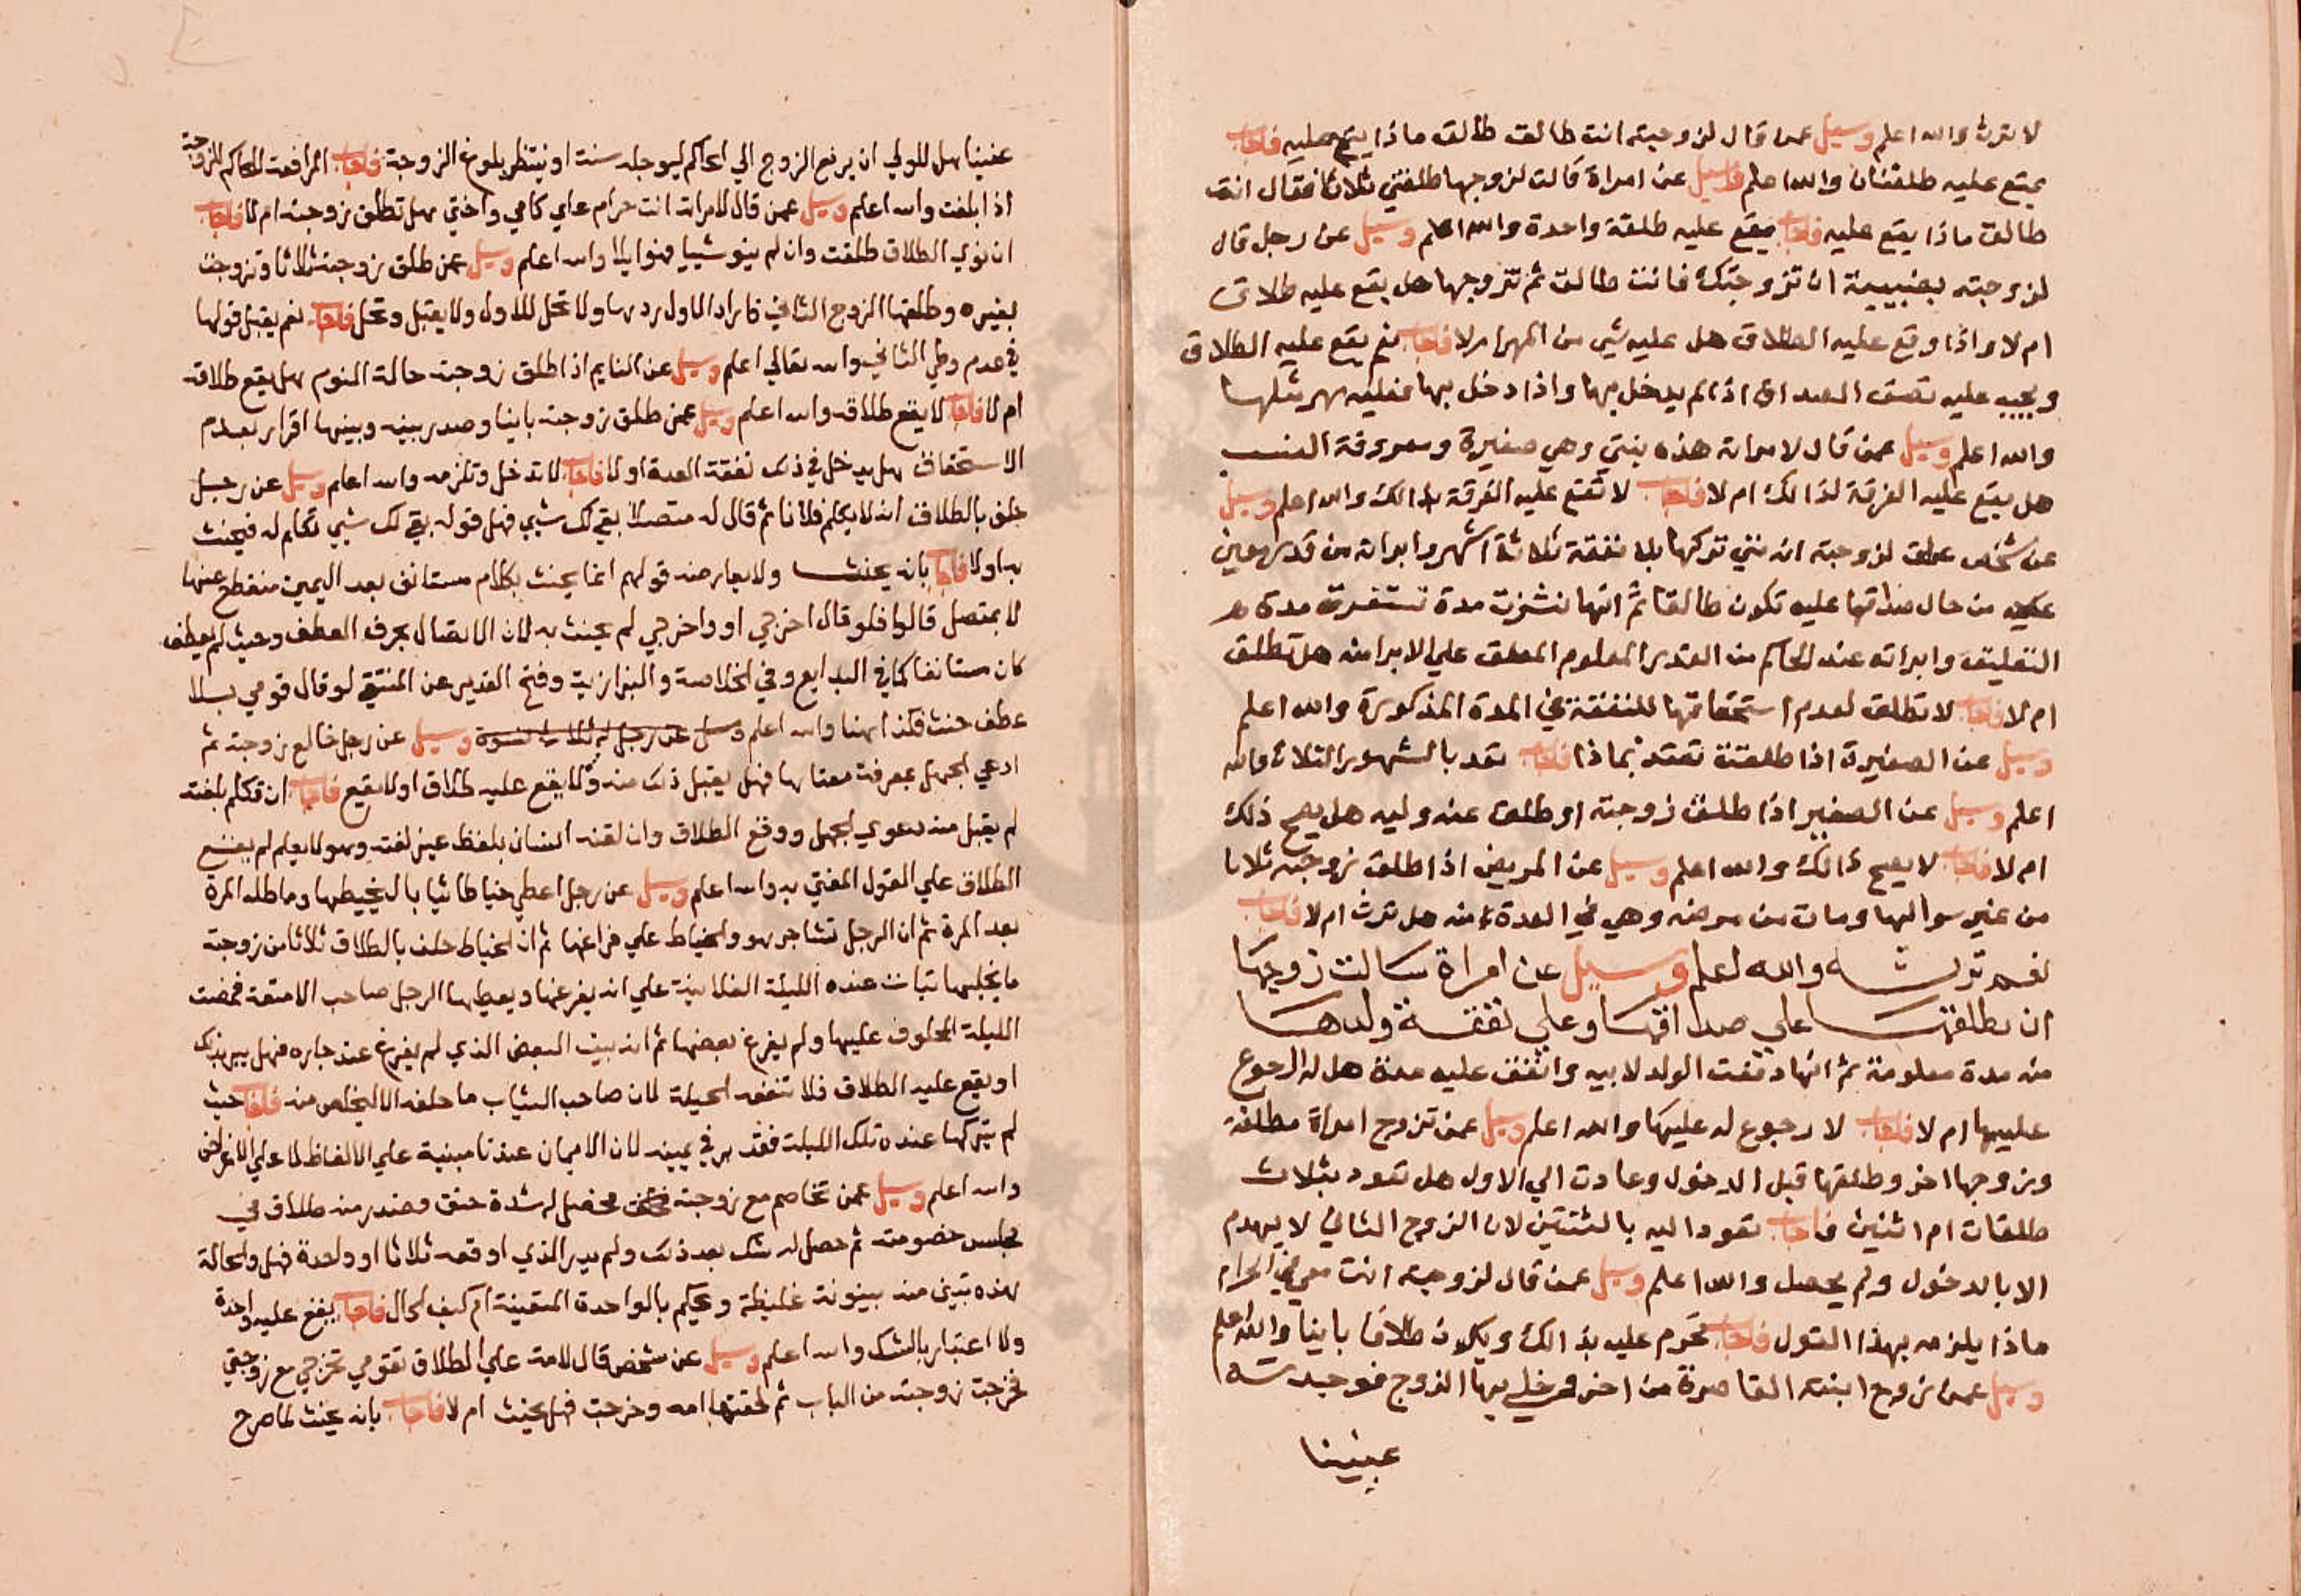 لا ترث والله اعلم وسيل عمن قال لزوجته انت طالق طالق ماذا يقع عليه فاجاب
يقع عليه طلقتان والله اعلم وسيل عن امراة قالت لزوجها طلقني ثلاثا فقال انت
طالق ماذا يقع عليه فاجاب يقع عليه طلقة واحدة والله اعلم وسيل عن رجل قال
لزوجته بصبيية ان تزوجتك فانت طالق ثم تزوجها هل يقع عليه طلاق
ام لا واذا وقع عليه الطلاق هل عليه شي من المهر ام لا فاجاب نعم يقع عليه الطلاق
ويجب عليه نصف الصداق اذا لم يدخل بها واذا دخل بها فعليه مهر مثلها
والله اعلم وسيل عمن قال لامراته هذه بنتي وهي صغيرة ومعروفة النسب
هل يقع عليه الفرقة لذالك ام لا فاجاب لا تقع عليه الفرقة بذالك والله اعلم وسيل
عن شخص علق لزوجته انه متي تركها بلا نفقة ثلاثة اشهر وابراته من قدر معين
عليه من حال صداقها عليه تكون طالقا ثم انها نشزت مدة تستغرق مدة
التعليق وابراته عند الحاكم من القدر المعلوم المعلق علي الابرا منه هل تطلق
ام لا فاجاب لا تطلق لعدم استحقاقها للنفقة في المدة المذكورة والله اعلم
وسيل عن الصغيرة اذا طلقت تعتد بماذا فاجاب تعد بالشهور الثلاث والله
اعلم وسيل عن الصغير اذا طلق زوجته او طلق عنه وليه هل يصح ذلك
ام لا فاجاب لا يصح ذالك والله اعلم وسيل عن المريض اذا طلق زوجته ثلاثا
من غير سوالها ومات من مرضه وهي في العدة منه هل ترث ام لا فاجاب
نعم ترثه والله اعلم وسيل عن امراة سالت زوجها
ان يطلقها علي صداقها وعلي نفقة ولدها
منه مدة معلومة ثم انها دفعت الولد لابيه وانفق عليه مدة هل له الرجوع
عليها ام لا فاجاب لا رجوع له عليها والله اعلم وسيل عمن تزوج امراة مطلقة
وتزوجها اخر وطلقها قبل الدخول وعادت الي الاول هل تعود بثلاث
طلقات ام اثنين فاجاب تعود اليه بالثنتين لان الزوج الثاني لا يهدم
الا بالدخول ولم يحصل والله اعلم وسيل عمن قال لزوجته انت معي في الحرام
ماذا يلزمه بهذا القول فاجاب تحرم عليه بذالك ويكون طلاقا باينا والله اعلم
وسيل عمن زوج ابنته القاصرة من اخر ودخل بها الزوج فوجدته
عنينا
عنينا هل للولي ان يرفع الزوج الي الحاكم ليوجله سنة او ينتظر بلوغ الزوجة فاجاب المرافعة للحاكم للزوجة
اذا بلغت والله اعلم وسيل عمن قال لامراته انت حرام علي كامي واختي هل تطلق زوجته ام لا فاجاب
ان نوي الطلاق طلقت وان لم ينو شييا فهو ايلا والله اعلم وسيل عمن طلق زوجته ثلاثا وتزوجت
بغيره وطلقها الزوج الثاني فاراد الاول ردها ولا تحل للاول ولا يقبل وتحل فاجاب نعم يقبل قولها
في عدم وطي الثاني والله تعالي اعلم وسيل عن النايم اذا طلق زوجته حالة النوم هل يقع طلاقه
ام لا فاجاب لا يقع طلاقه والله اعلم وسيل عمن طلق زوجته باينا وصدر بينه وبينها اقرار بعدم
الاستحقاق هل يدخل في ذلك نفقة العدة او لا فاجاب لا تدخل وتلزمه والله اعلم وسيل عن رجل
حلف بالطلاق انه لا يكلم فلانا ثم قال له متصلا بقي لك شيي فهل قوله بقي لك شيي تكلم له فيحنث
به اولا فاجاب بانه يحنث ولا يعارضه قولهم انما يحنث بكلام مستانف بعد اليمين منقطع عنها
لا بمتصل قالوا فلو قال اخرجي او واخرجي لم يحنث به لان الاتصال بحرف العطف وحيث لم يعطف
كان مستانفا كما في البدايع وفي الخلاصة والبزازية وفتح القدير عن المنتقي لو قال قومي بلا
عطف حنث فكذا هنا والله اعلم وسيل عن رجل له ثلاث نسوة وسيل عن رجل خالع زوجته ثم
ادعي الجهل بمعرفة معناها فهل يقبل ذلك منه ولا يقع عليه طلاق او لا يقع فاجاب ان تكلم بلغته
لم يقبل منه دعوي الجهل ووقع الطلاق وان لقنه انسان بلفظ غير لغته وهو لا يعلم لم يقع
الطلاق علي القول المفتي به والله اعلم وسيل عن رجل اعطي خياطا ثيابا ليخيطها وماطله المرة
بعد المرة ثم ان الرجل تشاجر هو والخياط علي فراغها ثم ان الخياط حلف بالطلاق ثلاثا من زوجته
ما يخليها تبات عنده الليلة الفلانية علي انه يفرغها ويعطيها الرجل صاحب الامتعة فمضت
الليلة المحلوف عليها ولم يفرغ بعضها ثم انه بيت البعض الذي لم يفرغ عند جاره فهل يبر بذلك
او يقع عليه الطلاق فلا تنفعه الحيلة لان صاحب الثياب ما حلفه الا ليخلص منه فاجاب حيث
لم يتركها عنده تلك الليلة فقد بر في يمينه لان الايمان عندنا مبنية علي الالفاظ لا علي الاغراض
والله اعلم وسيل عمن تخاصم مع زوجته فحصل له شدة حنق وصدر منه طلاق في
مجلس خصومته ثم حصل له شك بعد ذلك ولم يدر الذي اوقعه ثلاثا او واحدة فهل والحالة
هذه تبين منه بينونة غليظة ويحكم بالواحدة المتيقنة ام كيف الحال فاجاب يقع عليه واحدة
ولا اعتبار بالشك والله اعلم وسيل عن شخص قال لامه علي الطلاق تقومي تخرجي مع زوجتي
فخرجت زوجته من الباب ثم لحقتها امه وخرجت فهل يحنث ام لا فاجاب بانه يحنث لما صرح